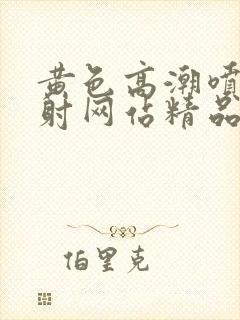 黄色高潮喷
射网佔精品
伯里克